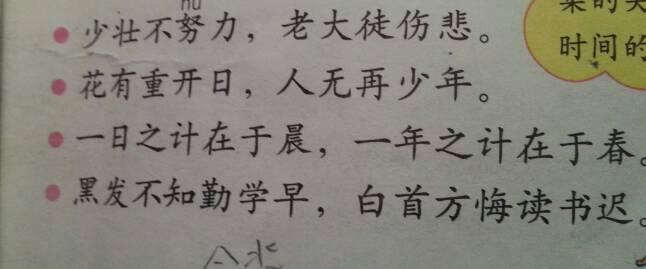 nǔ
少壮不努力，老大徒伤悲。
花有重开日，人无再少年。
一日之计在于晨，一年之计在于春。
黑发不知勤学早，白首方悔读书迟。
时间的